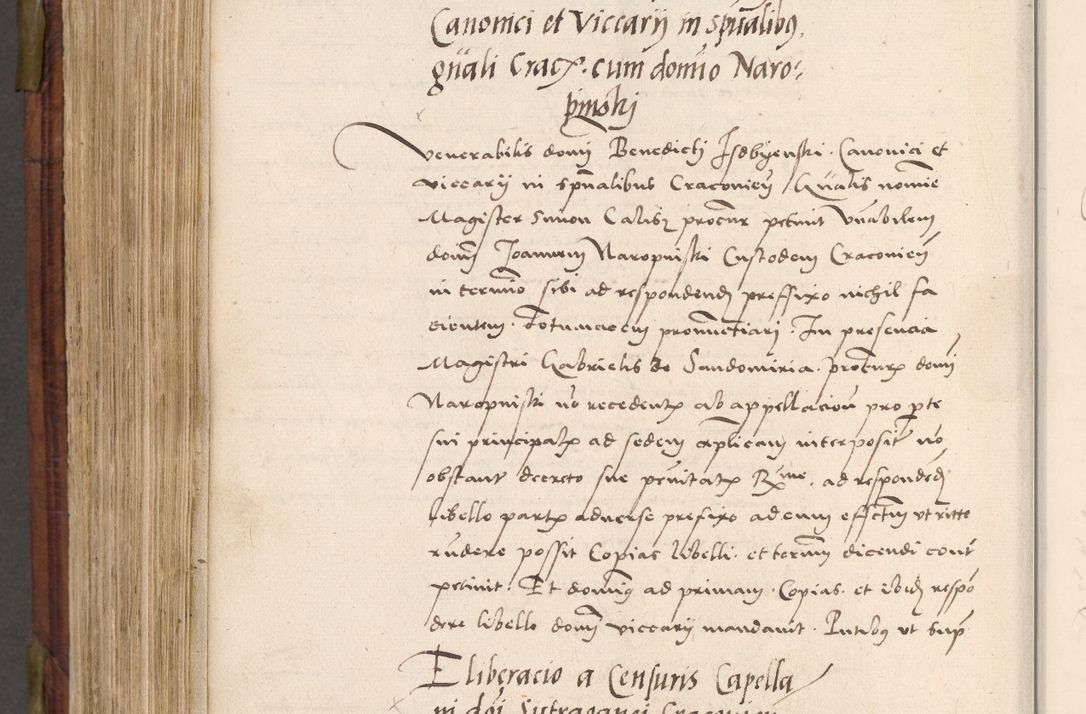 Canonici et Viccarÿ in sp̃ualibꝰ
gñali Cracꝝ. cum domĩo Naro:
pinski
Venerabilis domĩ Benedicti Isdbyenski. Canonici et
viccarÿ in sp̃ualibus Craconieñ gñalis nomĩe
Magister Simon Calisz procur̃ petiuit Vñabilem
domĩ Joannem Naropinski Custodem Craconieñ
in termĩo sibi ad respondend̃ prefixo nichil fa
cientem. Cotumacem pronũctiari. In presencia
Magistri Gabrielis de Sandomiria. procurꝝ domĩ
Naropinski nõ recedentꝝ ab appellacioñ pro ꝑte
sui principalꝝ ad sedem ap̃licam interposit̃ nõ
obstant̃ decreto sue p̃uitatꝝ Rx̃me. ad respondẽd̃
libello partꝝ aduerse prefixo ad eum effectũm vt ritte
rũdere possit Copias libelli. et termĩ dicendi cont̃
petiuit. Et domĩꝰ ad primam. Copias. et ibid̃ respõ
dere libello domĩ viccarÿ mandauit. Pntibꝰ vt sup̃
Eliberacio a Censuris Capella
ni dõi Sufraganei Craconieñ